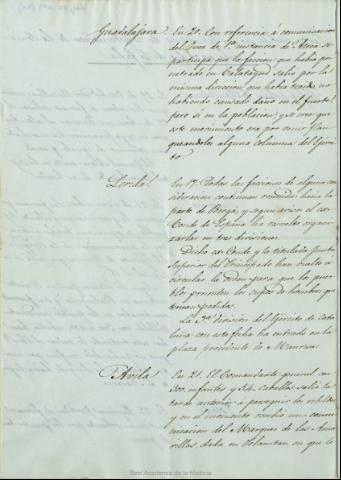 Guadalajara. En 20. Con referencia á comunicacion
del Juez de 1ª instancia de Ateca se
participa que la faccion que habia pe-
netrado en Calatayud salió por la
misma direccion que habia traido no
habiendo causado daño en el fuerte,
pero si en la poblacion; y se cree que
este movimiento era por venir flan-
queandola alguna columna del Ejerci-
to.
Lerida. En 17. Todas las facciones de alguna con-
sideracion continuan reunidas hacia la
parte de Berga, y segun el ex-
Conde de España las organi-
zarlas en tres divisiones.
Dicho ex-Conde y la titulada Junta
Superior del Principado han vuelto á
circular la orden para que los pue-
blos presenten los cupos de hombres que
tenian pedidos.
La 3ª division del Ejército de Cata-
luña con esta fecha ha entrado en la
plaza procedente de Manresa.
Avila. En 21. El Comandante general con
300 infantes y 54 caballos salió la
tarde anterior á perseguir los rebeldes
y en el momento recibió una comu-
nicacion del Marques de las Ama-
rillas, dada en que le
Real Academia de la Historia